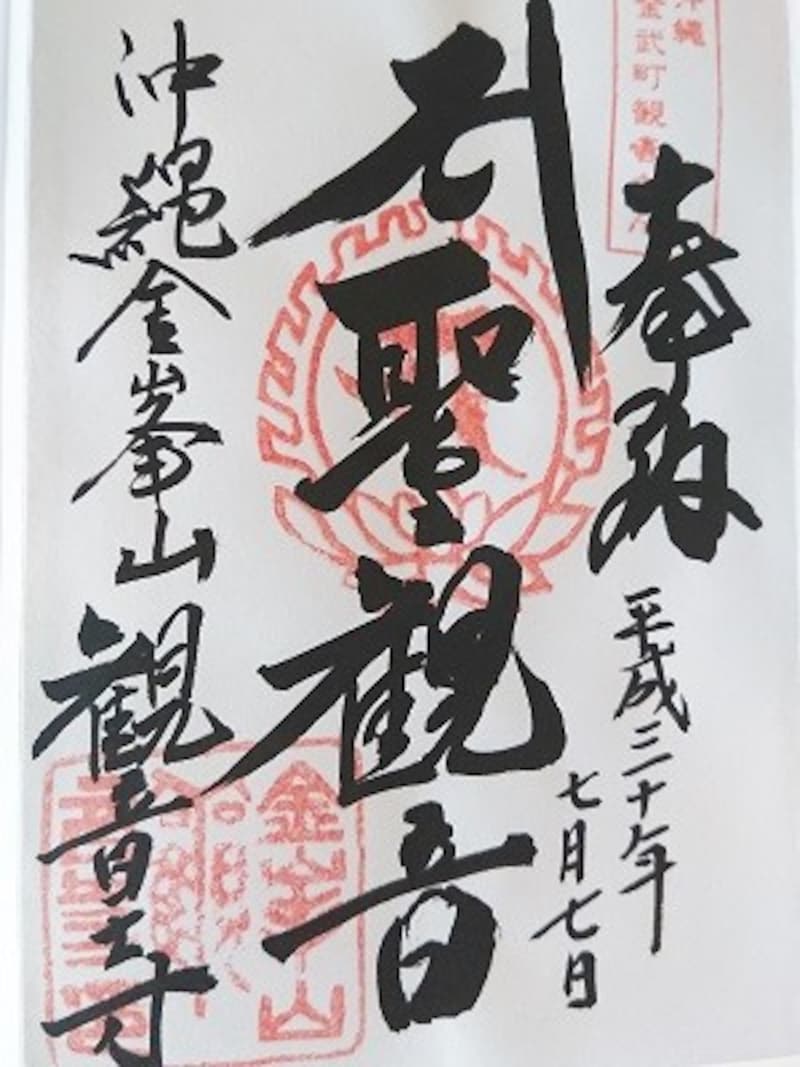 沖縄
金武町観音
奉
平成三十年
七月七日
聖観音
沖縄金峯山観音寺
金峯山